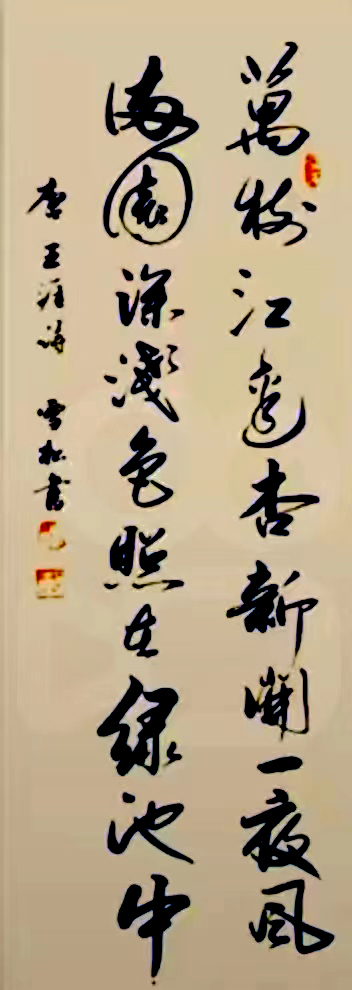 萬树江边杏新開一夜風
满園深淺色照在绿池中
唐王涯詩 雪松書